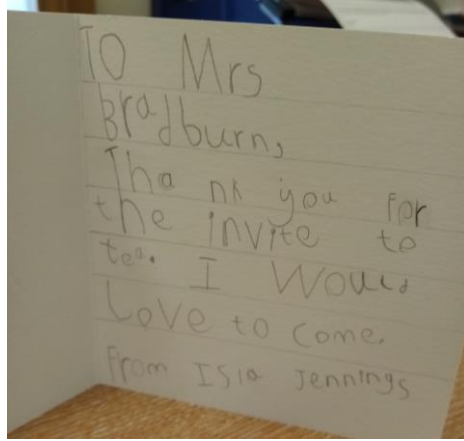 TO Mrs
Bradburn,
Thank you for
the invite to
tea. I Would
Love to come.
From Isla Jennings